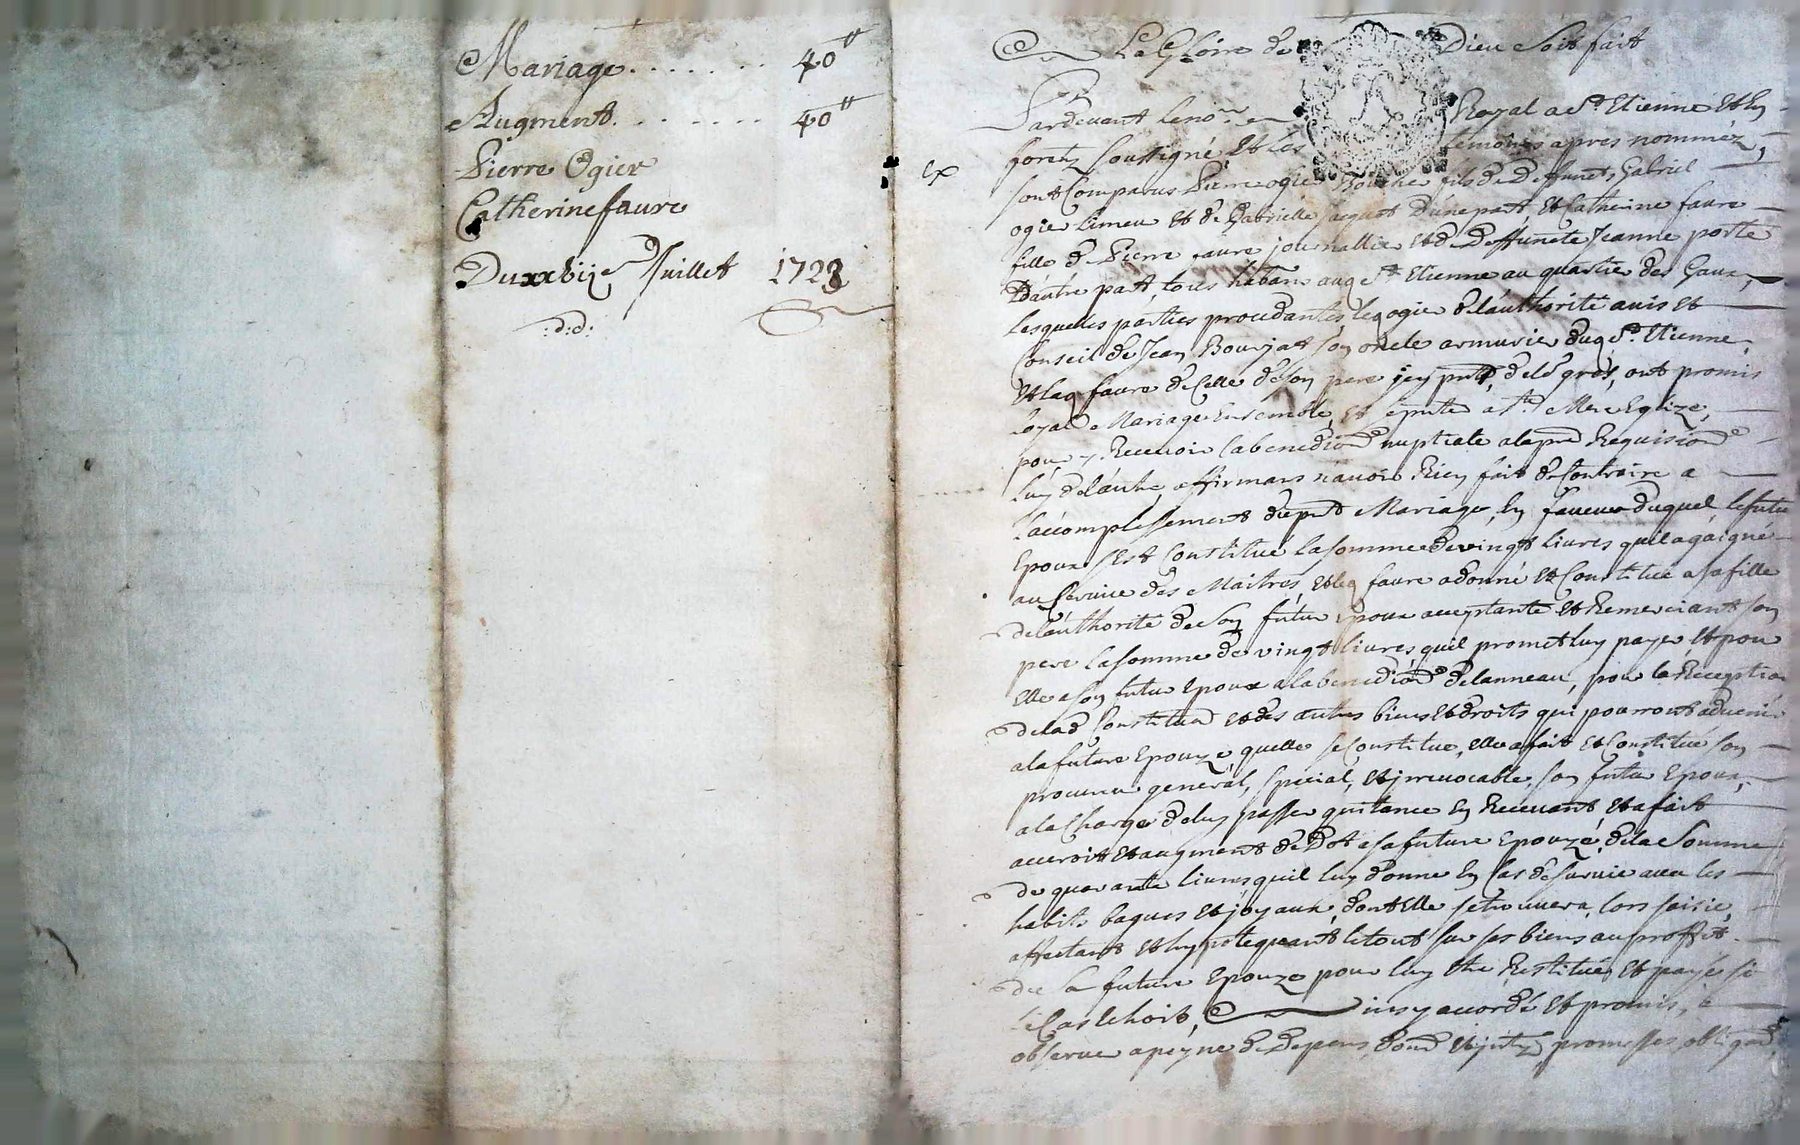 Mariage . . . . . . . 40 ₶
Augment . . . . . . . 40 ₶
Pierre Ogier
Catherine faure
Du xxbije Juillet 1728
:d:d:
La Gloire de Dieu Soit fait
Pardevant le no.re Royal a St Etienne Et en
foretz soussigné, Et les temoins apres nommez,
ex
sont Comparus Pierre ogier fils de Deffunets Gabriel
ogier Limeu et de Gabrielle Jacquet D'une part, Et Catherine faure
fille de Pierre faure journallier et de Deffuncte Jeanne porte
D'autre part, tous habans aud St Etienne au quartier des Gaux,
Lesquelles parties proceddantes, led ogier de l'authorité auis et
Conseil de Jean Bourjat son oncle armurier dud St. Etienne,
Et lad faure de Celle de son pere jcy pnt, de leur gré, ont promis
loyal Mariage Ensemble, et a Ste Mere Eglize,
pour y Recevoir la benediction nuptiale a la pre Requisition
l'un de l'autre, affirmans n'avoir Rien fait de Contraire a
l'accomplissement du pnt Mariage, En faveur duquel le futur
Epoux s'Est Constitué la somme de vingt livres quil a gaigné
au service des Maitres, Et led faure a donné et Constitué a sa fille
de l'authorité de son futur Epoux acceptante et Remerciant son
pere la somme de vingt livres, quil promet luy payer Et pour
Elle a son futur Epoux a la benediction de l'anneau, pour la Reception
de lad Constitution et des autres biens Et droits qui pourront advenir
a la future Epouze quelle se Constitue, Elle a fait et Constitué son
procureur general, special, et jrrevocable, son futur Epoux,
a la Charge de luy passer quittance En Recevant, Et a fait
accroit Et augment de Dot a sa future Epouze, de la Somme
de quarante livres quil luy donne En Cas de survie avec les
habits bagues et joyaux, dont Elle se trouvera lors saisie,
affectant Et hypotequant le tout sur ses biens au proffit
de la future Epouze pour luy Etre Restitué, Et payé si
le Cas Echoit, insy accordé Et promis, a
observer a peyne de Depens, promesses, obligaon